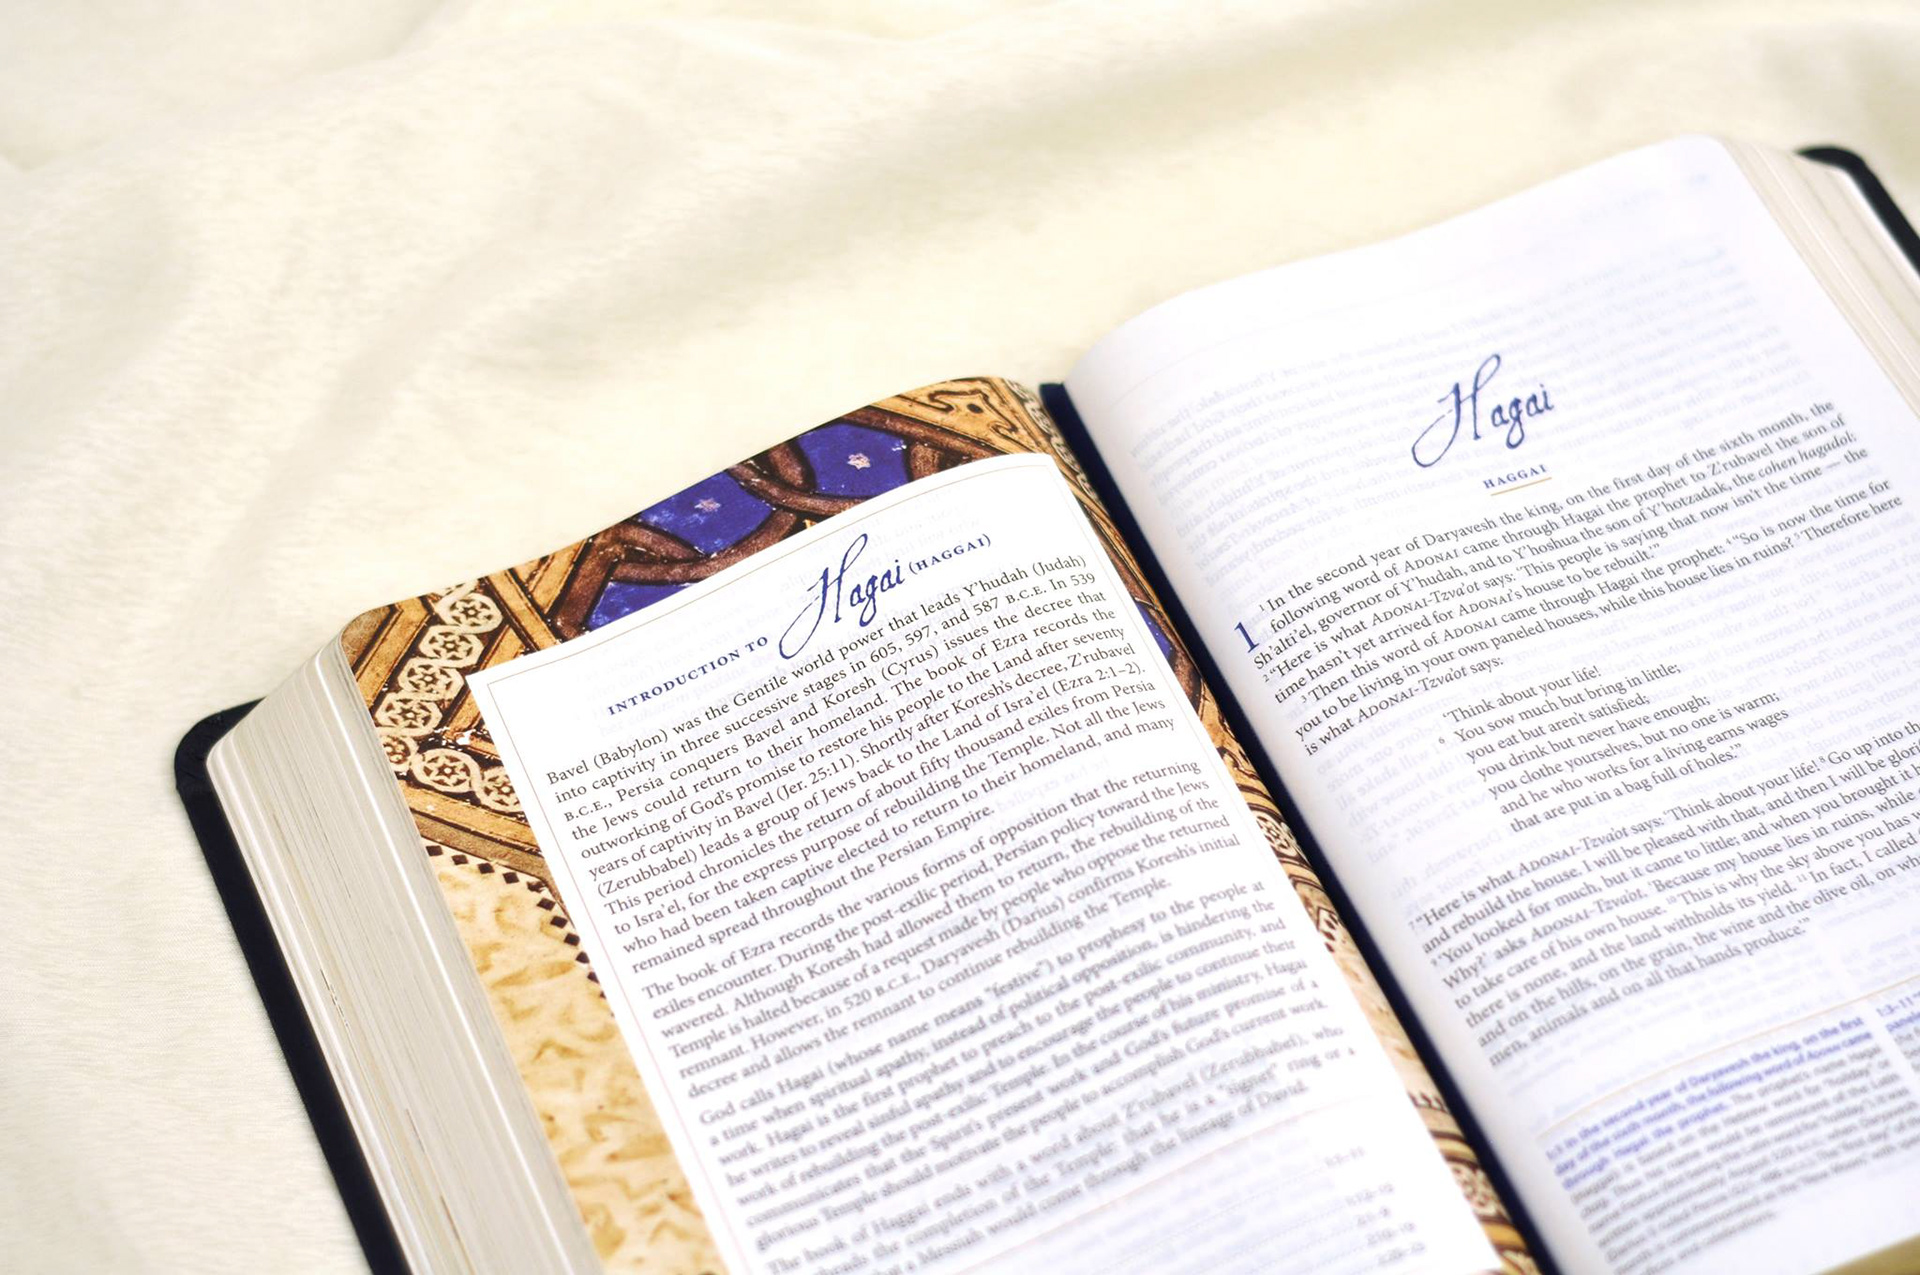 INTRODUCTION TO Hagai (HAGGAI)
Bavel (Babylon) was the Gentile world power that leads Y'hudah (Judah)
into captivity in three successive stages in 605, 597, and 587 B.C.E. In 539
B.C.E., Persia conquers Bavel and Koresh (Cyrus) issues the decree that
the Jews could return to their homeland. The book of Ezra records the
outworking of God's promise to restore his people to the Land after seventy
years of captivity in Bavel (Jer. 25:11). Shortly after Koresh's decree, Z'rubavel
(Zerubbabel) leads a group of Jews back to the Land of Isra'el (Ezra 2:1–2).
This period chronicles the return of about fifty thousand exiles from Persia
to Isra'el, for the express purpose of rebuilding the Temple. Not all the Jews
who had been taken captive elected to return to their homeland, and many
remained spread throughout the Persian Empire.
The book of Ezra records the various forms of opposition that the returning
exiles encounter. During the post-exilic period, Persian policy toward the Jews
wavered. Although Koresh had allowed them to return, the rebuilding of the
Temple is halted because of a request made by people who oppose the returned
remnant. However, in 520 B.C.E., Daryavesh (Darius) confirms Koresh's initial
decree and allows the remnant to continue rebuilding the Temple.
God calls Hagai (whose name means "festive") to prophesy to the people at
a time when spiritual apathy, instead of political opposition, is hindering the
work. Hagai is the first prophet to preach to the post-exilic community, and
he writes to reveal sinful apathy and to encourage the people to continue their
work of rebuilding the post-exilic Temple. In the course of his ministry, Hagai
communicates that the Spirit's present work and God's future promise of a
glorious Temple should motivate the people to accomplish God's current work.
The book of Haggai ends with a word about Z'rubavel (Zerubbabel), who
spreads the completion of the Temple; that he is a "signet" ring or a
that a Messiah would come through the lineage of David.
Hagai
HAGGAI
1 ¹ In the second year of Daryavesh the king, on the first day of the sixth month, the
following word of ADONAI came through Hagai the prophet to Z'rubavel the son of
Sh'alti'el, governor of Y'hudah, and to Y'hoshua the son of Y'hotzadak, the cohen hagadol:
² "Here is what ADONAI-Tzva'ot says: 'This people is saying that now isn't the time — the
time hasn't yet arrived for ADONAI's house to be rebuilt.'"
³ Then this word of ADONAI came through Hagai the prophet: ⁴ "So is now the time for
you to be living in your own paneled houses, while this house lies in ruins? ⁵ Therefore here
is what ADONAI-Tzva'ot says:
'Think about your life!
⁶ You sow much but bring in little;
you eat but aren't satisfied;
you drink but never have enough;
you clothe yourselves, but no one is warm;
and he who works for a living earns wages
that are put in a bag full of holes.'"
⁷ "Here is what ADONAI-Tzva'ot says: 'Think about your life! ⁸ Go up into the
and rebuild the house. I will be pleased with that, and then I will be
⁹ 'You looked for much, but it came to little; and when you brought it
Why?' asks ADONAI-Tzva'ot. 'Because my house lies in ruins, while
to take care of his own house. ¹⁰ This is why the sky above you has
there is none, and the land withholds its yield. ¹¹ In fact, I called
and on the hills, on the grain, the wine and the olive oil, on
men, animals and on all that hands produce.'"
1:1 In the second year of Daryavesh the king, on the first
day of the sixth month, the following word of ADONAI came
through Hagai the prophet. The prophet's name Hagai